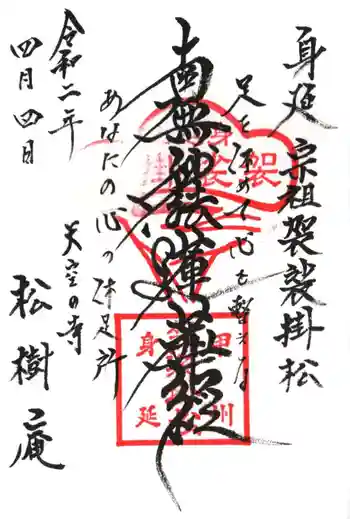 身延 宗祖袈裟掛松
足を休めて心を整える
南無妙法蓮華経
あなたの心の休足所
天空の寺
令和二年
四月四日
松樹庵
身
袈裟
甲州
身延